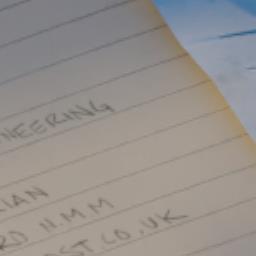 NEERING
IAN
RD N.M M
ST.CO.UK